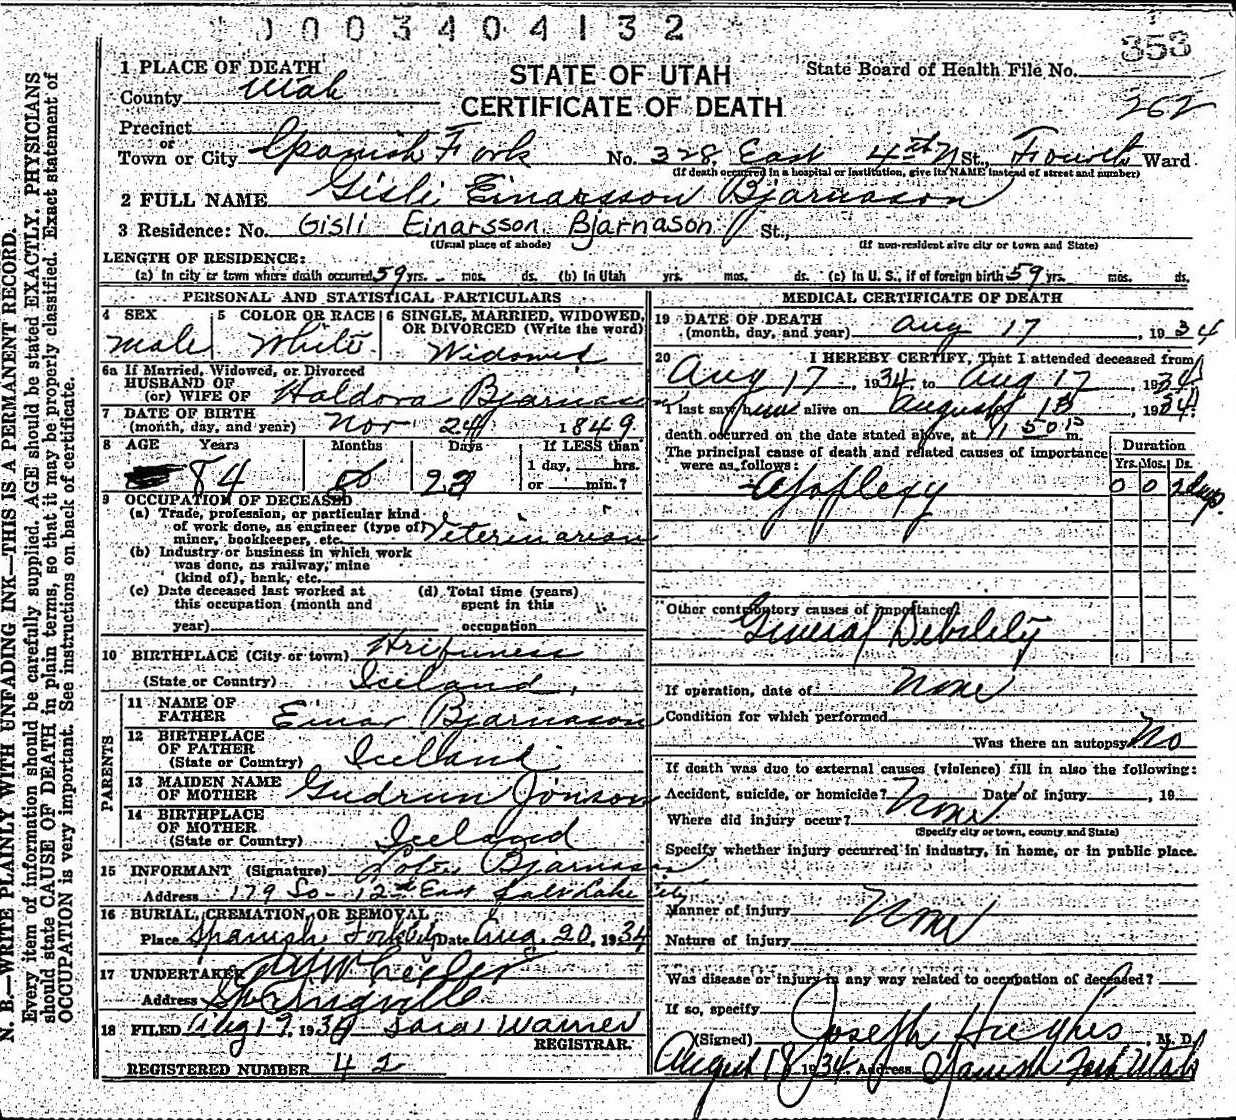 0003404132
353
STATE OF UTAH
CERTIFICATE OF DEATH
State Board of Health File No.
262
1 PLACE OF DEATH
County Utah
Precinct
or
Town or City Spanish Fork No. 328 East 4th N St., Fourth Ward
(If death occurred in a hospital or institution, give its NAME instead of street and number)
2 FULL NAME Gisli Einarsson Bjarnason
3 Residence: No. Gisli Einarsson Bjarnason St.,
(Usual place of abode) (If non-resident give city or town and State)
LENGTH OF RESIDENCE:
(a) In city or town where death occurred 59 yrs. mos. ds. (b) In Utah yrs. mos. ds. (c) In U. S., if of foreign birth 59 yrs. mos. ds.
PERSONAL AND STATISTICAL PARTICULARS
4 SEX 5 COLOR OR RACE 6 SINGLE, MARRIED, WIDOWED, OR DIVORCED (Write the word)
Male White Widowed
6a If Married, Widowed, or Divorced
HUSBAND OF
(or) WIFE OF Haldora Bjarnason
7 DATE OF BIRTH
(month, day, and year) Nov 24 1849
8 AGE Years Months Days If LESS than
84 8 23 1 day, hrs.
or min.?
9 OCCUPATION OF DECEASED
(a) Trade, profession, or particular kind
of work done, as engineer (type of)
miner, bookkeeper, etc. Veterinarian
(b) Industry or business in which work
was done, as railway, mine
(kind of), bank, etc.
(c) Date deceased last worked at (d) Total time (years)
this occupation (month and spent in this
year) occupation
10 BIRTHPLACE (City or town) Hrifuness
(State or Country) Iceland
PARENTS
11 NAME OF
FATHER Einar Bjarnason
12 BIRTHPLACE
OF FATHER
(State or Country) Iceland
13 MAIDEN NAME
OF MOTHER Gudrun Jonson
14 BIRTHPLACE
OF MOTHER
(State or Country) Iceland
15 INFORMANT (Signature) Bjarnason
Address 179 So - 12th East Salt Lake City
16 BURIAL, CREMATION, OR REMOVAL
Place Spanish Fork City Date Aug. 20, 1934
17 UNDERTAKER Wheeler
Address Springville
18 FILED Aug 19, 1934 Sara Warner
REGISTRAR.
REGISTERED NUMBER 42
MEDICAL CERTIFICATE OF DEATH
19 DATE OF DEATH
(month, day, and year) Aug 17 , 1934
20 I HEREBY CERTIFY, That I attended deceased from
Aug 17, 1934, to Aug 17, 1934
I last saw him alive on August 13, 1934
death occurred on the date stated above, at 1:50 P m.
The principal cause of death and related causes of importance
were as follows:
Duration
Yrs. Mos. Ds.
Apoplexy 0 0 days
Other contributory causes of importance
General Debility
If operation, date of None
Condition for which performed
Was there an autopsy No
If death was due to external causes (violence) fill in also the following:
Accident, suicide, or homicide? None Date of injury , 19
Where did injury occur?
(Specify city or town, county and State)
Specify whether injury occurred in industry, in home, or in public place.
Manner of injury None
Nature of injury
Was disease or injury in any way related to occupation of deceased?
If so, specify
(Signed) Joseph Hughes , M. D.
August 18 1934 Address Spanish Fork Utah
N. B.—WRITE PLAINLY WITH UNFADING INK—THIS IS A PERMANENT RECORD.
Every item of information should be carefully supplied. AGE should be stated EXACTLY. PHYSICIANS
should state CAUSE OF DEATH in plain terms, so that it may be properly classified. Exact statement of
OCCUPATION is very important. See instructions on back of certificate.